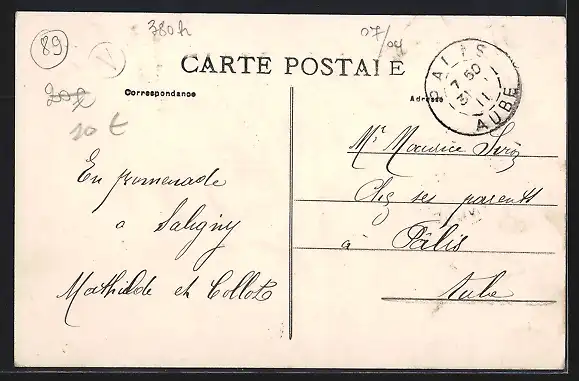 89
V
380h
07/04
CARTE POSTALE
20f
10 t
Correspondance
Adresse
PALIS
7 50
31 1
11
AUBE
En promenade
a Saligny
Mathilde et Collot
Mr Maurice
Chez ses parents
à Pâlis
Aube